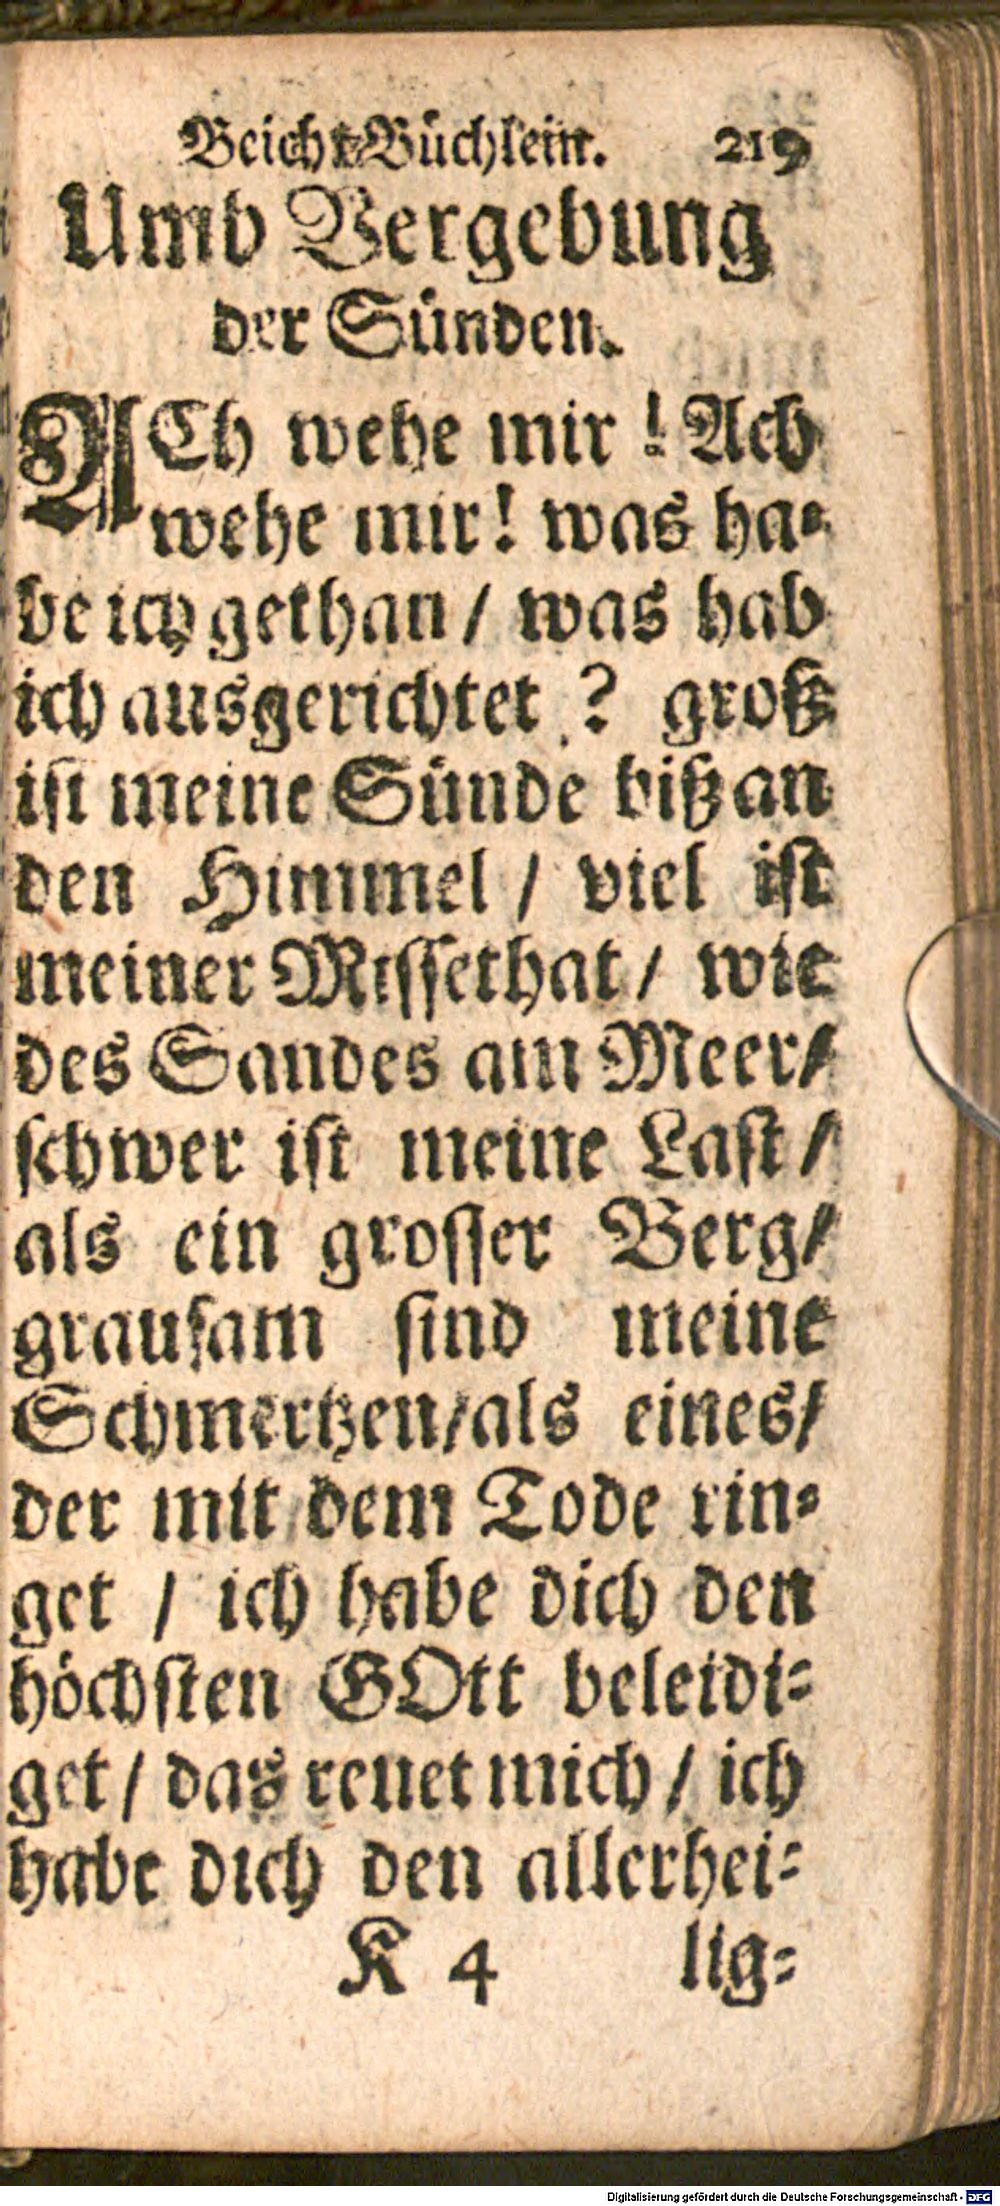 Beicht-Büchlein. 219
Umb Vergebung
der Sünden.
ACh wehe mir! Ach
wehe mir! was ha-
be ich gethan / was hab
ich ausgerichtet ? groß
ist meine Sünde biß an
den Himmel / viel ist
meiner Missethat / wie
des Sandes am Meer /
schwer ist meine Last /
als ein grosser Berg /
grausam sind meine
Schmertzen / als eines /
der mit dem Tode rin-
get / ich habe dich den
höchsten GOtt beleidi-
get / das reuet mich / ich
habe dich den allerhei-
K 4 lig-
Digitalisierung gefördert durch die Deutsche Forschungsgemeinschaft - DFG